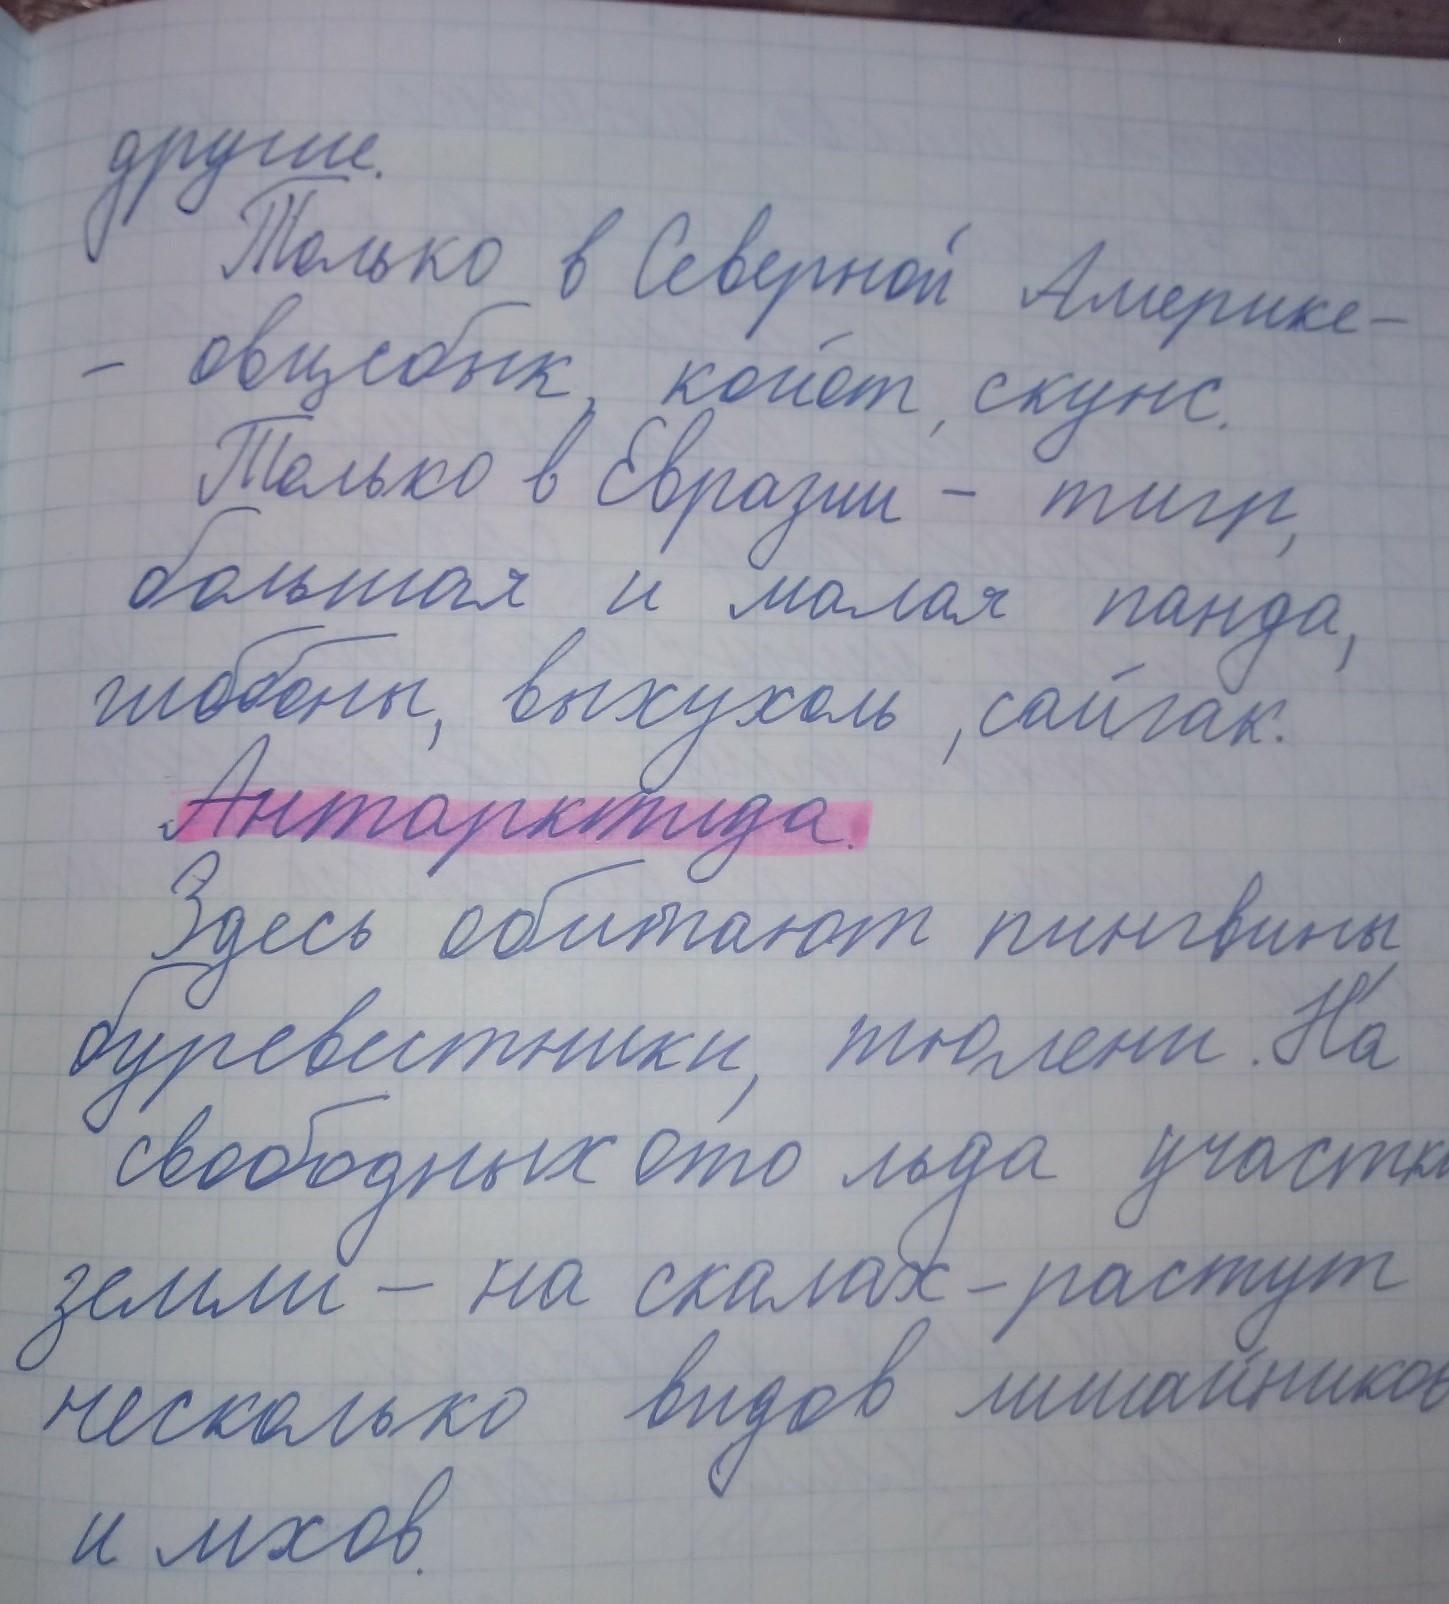 другие.
Только в Северной Америке-
- овцебык, койот, скунс.
Только в Евразии - тигр,
большая и малая панда,
гиббоны, выхухоль, сайгак.
Антарктида.
Здесь обитают пингвины
буревестники, тюлени. На
свободных ото льда участк
земли - на скалах - растут
несколько видов лишайников
и мхов.